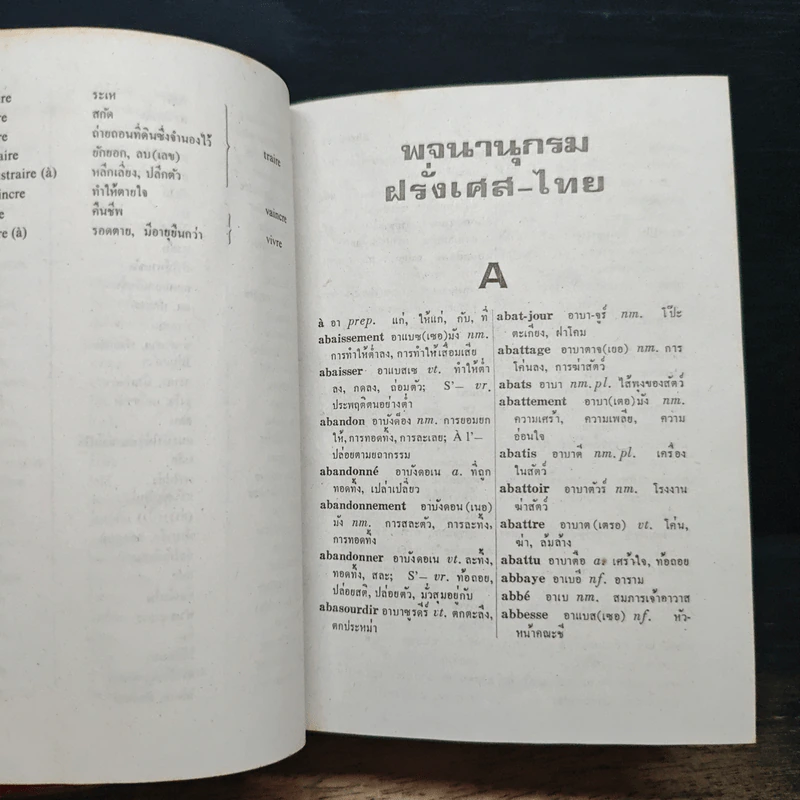 re ระเห
re สกัด
re ถ่ายถอนที่ดินซึ่งจำนองไว้
aire ยักยอก, ลบ(เลข)
straire (à) หลีกเลี่ยง, ปลีกตัว
traire
incre ทำให้ตายใจ
e คืนชีพ
vaincre
re (à) รอดตาย, มีอายุยืนกว่า
vivre
พจนานุกรม
ฝรั่งเศส-ไทย
A
à อา prep. แก่, ให้แก่, กับ, ที่
abaissement อาแบซ(เซอ)มัง nm.
การทำให้ต่ำลง, การทำให้เสื่อมเสีย
abaisser อาแบสเซ vt. ทำให้ต่ำ
ลง, กดลง, ถ่อมตัว; S'– vr.
ประพฤติตนอย่างต่ำ
abandon อาบังด็อง nm. การยอมยก
ให้, การทอดทิ้ง, การละเลย; À l'–
ปล่อยตามยถากรรม
abandonné อาบังดอเน a. ที่ถูก
ทอดทิ้ง, เปล่าเปลี่ยว
abandonnement อาบังดอน(เนอ)
มัง nm. การสละตัว, การละทิ้ง,
การทอดทิ้ง
abandonner อาบังดอเน vt. ละทิ้ง,
ทอดทิ้ง, สละ; S'– vr. ท้อถอย,
ปล่อยสติ, ปล่อยตัว, มั่วสุมอยู่กับ
abasourdir อาบาซูรดีร์ vt. ตกตะลึง,
ตกประหม่า
abat-jour อาบา-จูร์ nm. โป๊ะ
ตะเกียง, ฝาโคม
abattage อาบาตาจ(เยอ) nm. การ
โค่นลง, การฆ่าสัตว์
abats อาบา nm.pl. ไส้พุงของสัตว์
abattement อาบา(เตอ)มัง nm.
ความเศร้า, ความเพลีย, ความ
อ่อนใจ
abatis อาบาตี nm.pl. เครื่อง
ในสัตว์
abattoir อาบาตัวร์ nm. โรงงาน
ฆ่าสัตว์
abattre อาบาต(เตรอ) vt. โค่น,
ฆ่า, ล้มล้าง
abattu อาบาตือ a. เศร้าใจ, ท้อถอย
abbaye อาเบอี nf. อาราม
abbé อาเบ nm. สมภารเจ้าอาวาส
abbesse อาแบส(เซอ) nf. หัว-
หน้าคณะชี